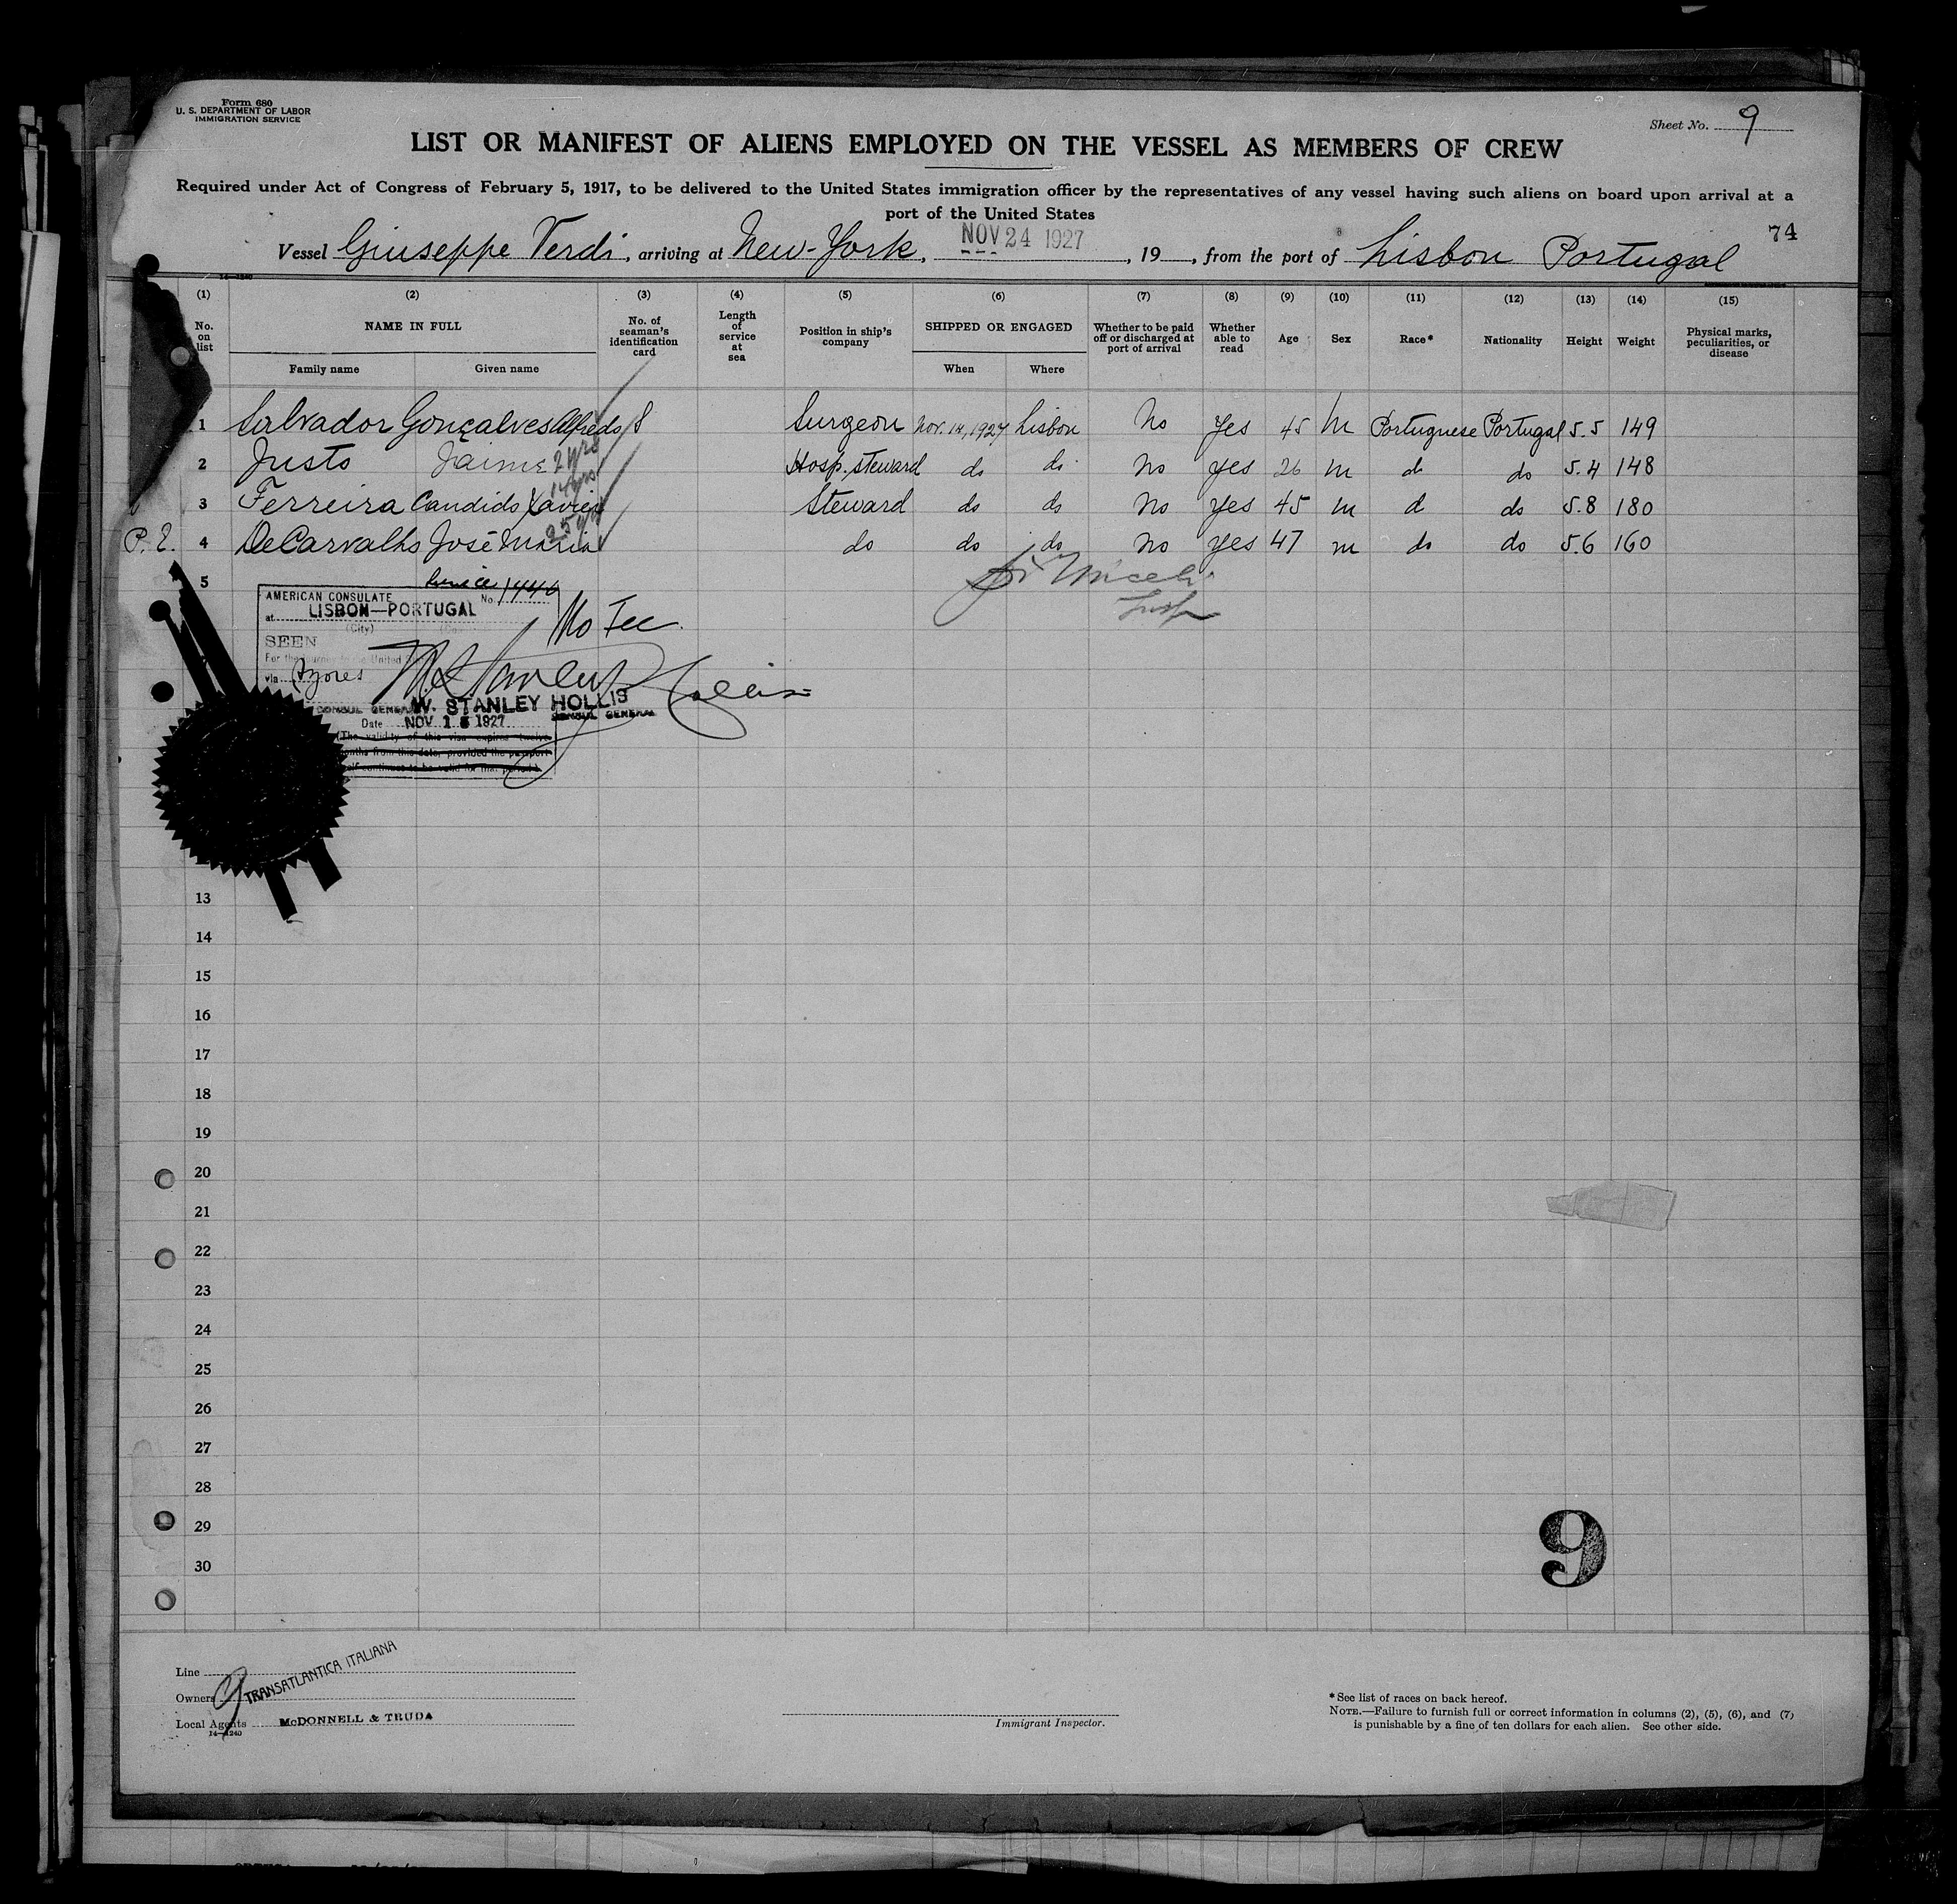 Form 680
U. S. DEPARTMENT OF LABOR
IMMIGRATION SERVICE
Sheet No. 9
LIST OR MANIFEST OF ALIENS EMPLOYED ON THE VESSEL AS MEMBERS OF CREW
Required under Act of Congress of February 5, 1917, to be delivered to the United States immigration officer by the representatives of any vessel having such aliens on board upon arrival at a
port of the United States
74
Vessel Giuseppe Verdi, arriving at New-York, NOV 24 1927, 19, from the port of Lisbon Portugal
14—1240
(1) (2) (3) (4) (5) (6) (7) (8) (9) (10) (11) (12) (13) (14) (15)
No. on list
NAME IN FULL
Family name Given name
No. of seaman's identification card
Length of service at sea
Position in ship's company
SHIPPED OR ENGAGED
When Where
Whether to be paid off or discharged at port of arrival
Whether able to read
Age
Sex
Race*
Nationality
Height
Weight
Physical marks, peculiarities, or disease
1 Salvador Gonçalves Alfredo S Surgeon Nov. 14, 1927 Lisbon No Yes 45 M Portuguese Portugal 5.5 149
2 Justo Jaime 2 yrs Hosp. steward do do No yes 26 m do do 5.4 148
3 Ferreira Candido Xavier 14 yrs Steward do do No yes 45 m do do 5.8 180
P. E. 4 DeCarvalho José Maria 25 yrs do do do No yes 47 m do do 5.6 160
5
AMERICAN CONSULATE
Service No. 1440
at LISBON—PORTUGAL
(City)
No Fee.
SEEN
For the journey to the United
via Azores
W. Stanley Hollis
W. STANLEY HOLLIS
CONSUL GENERAL
CONSUL GENERAL
Date NOV 15 1927
(The validity of this visa expires twelve
months from this date, provided the passport
itself continues to be valid for that period.)
13
14
15
16
17
18
19
20
21
22
23
24
25
26
27
28
29
30
9
Line
Owners TRANSATLANTICA ITALIANA
9
Local Agents McDONNELL & TRUDA
14—1240
Immigrant Inspector.
*See list of races on back hereof.
NOTE.—Failure to furnish full or correct information in columns (2), (5), (6), and (7)
is punishable by a fine of ten dollars for each alien. See other side.